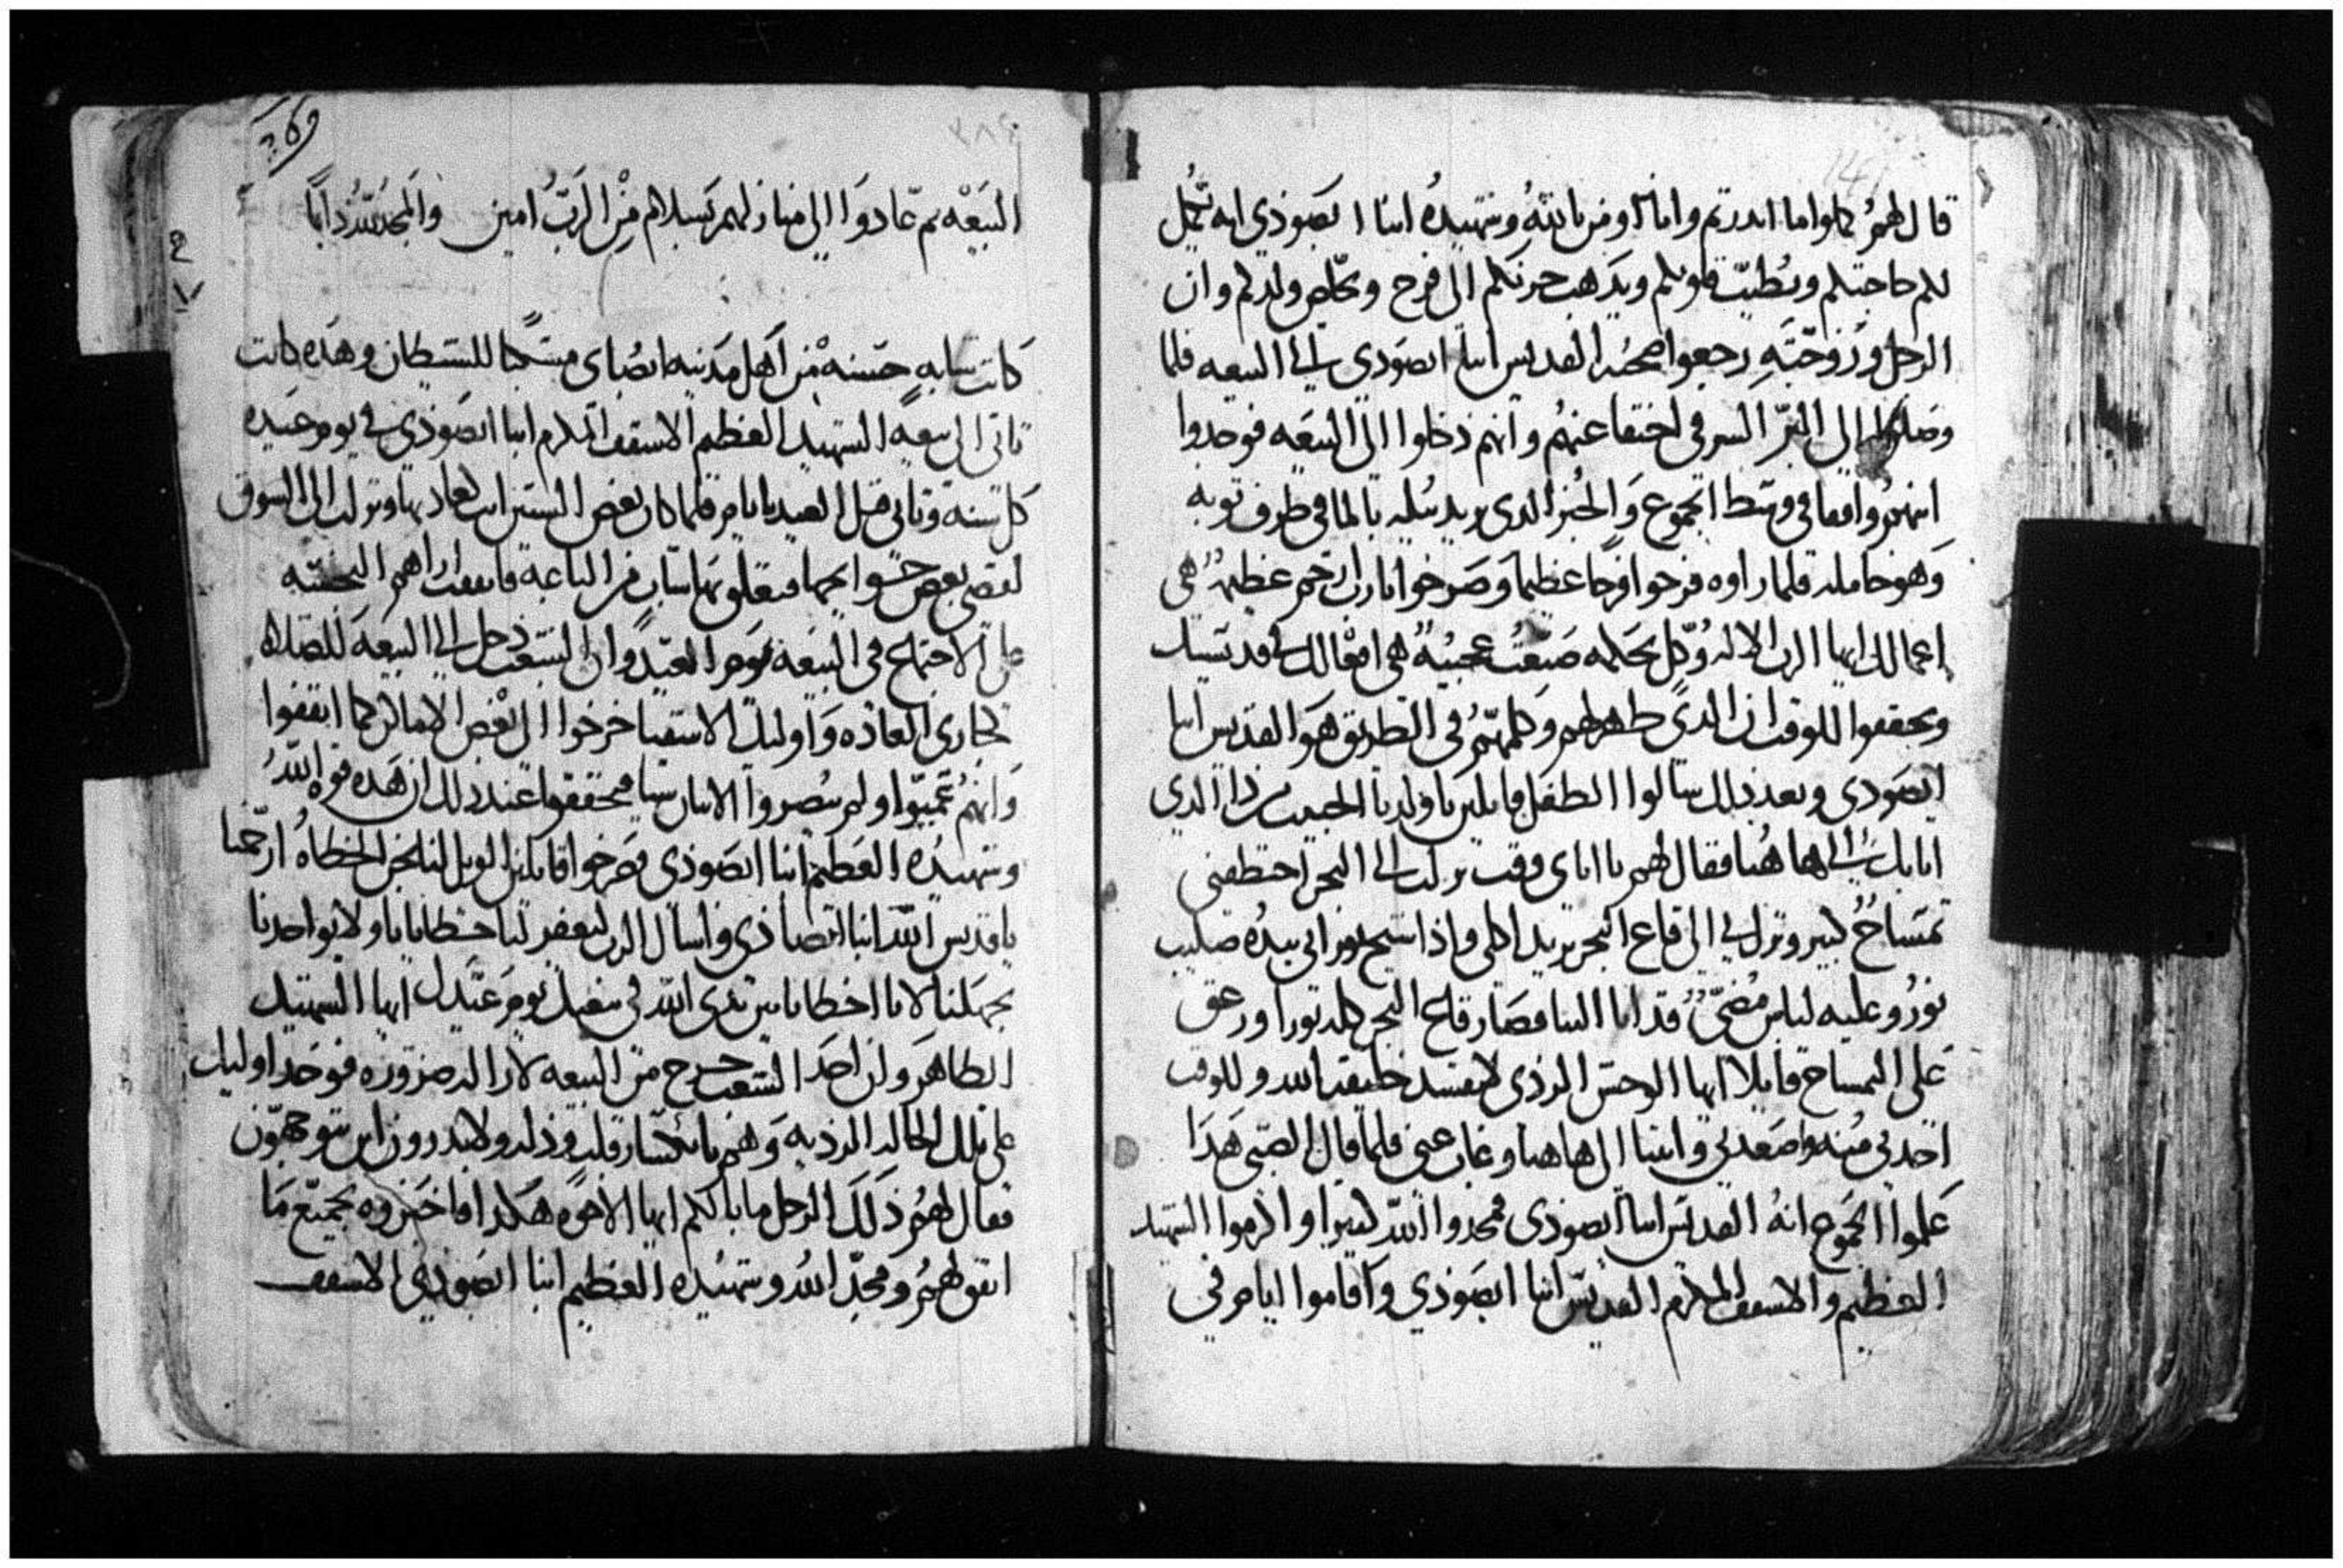 قال لهم كملوا ما اندرتم وانا اومن بالله وشهيده انبا ابصودي انه تكمل
لكم حاجتكم ويطيب قلوبكم ويذهب حزنكم الى فرح وخلص ولدكم وان
الرجل وزوجته رجعوا صحبة القديس انبا ابصودي الى البيعه فلما
وصلوا الى البر الشرقي اختفا عنهم وانهم دخلوا الى البيعه فوجدوا
ابنهم واقفا في وسط الجموع والخبز الذي يريد يبله بالما في طرف ثوبه
وهو حامله فلما راوه فرحوا فرحا عظيما وصرخوا يارب ارحم عظيمه هي
اعمالك ايها الرب الاله وكل بحكمه صنعت عجيبه هي افعالك في قديسيك
وتحققوا للوقت ان الذي ظهر لهم وكلمهم في الطريق هو القديس انبا
ابصودي وبعد ذلك سالوا الطفل قايلين يا ولدنا الحبيب من ذا الذي
اتا بك الى هاهنا فقال لهم يا اباي وقت نزلت الى البحر اختطفني
تمساح كبير ونزل بي الى قاع البحر يريد اكلي واذا شيخ نوراني بيده صليب
نور وعليه لباس مضي قد اتا الينا فصار قاع البحر كله نورا وزعق
على التمساح قايلا ايها الوحش الردي لا تفسد خليقة الله وللوقت
اخدني منه واصعدني واتينا الى هاهنا وغاب عني فلما قال الصبي هذا
علموا الجموع انه القديس انبا ابصودي فمجدوا الله كثيرا واكرموا الشهيد
العظيم والاسقف المكرم القديس انبا ابصودي واقاموا ايام في
البيعه ثم عادوا الى منازلهم بسلام من الرب امين والمجد لله دايما
كانت شابه حسنه من اهل مدينه ابصاي مسكنا للشيطان وهذه كانت
تاتي الى بيعه الشهيد العظيم الاسقف المكرم انبا ابصودي في يوم عيده
كل سنه وتاتي قبل العيد بايام فلما كان بعض السنين اتت لعادتها ونزلت الى السوق
لتقضي بعض حوايجها فتعلق بها شاب من الباعه فاتفقت اراهم النجسه
على الاجتماع في البيعه يوم العيد وان الشعب دخل الى البيعه للصلاه
كجاري العاده واوليك الاشقيا خرجوا الى بعض الاماكن كما اتفقوا
وانهم تعجبوا ولم يبصروا الابار شيا فتحققوا عند ذلك ان هذه قوه الله
وشهيده العظيم انبا ابصودي فصرخوا قايلين الويل لنا نحن الخطاه ارحمنا
يا قديس الله انبا ابصادي واسال الرب ليغفر لنا خطايانا ولا يواخذنا
بجهلنا لاننا اخطانا بين يدي الله في محفل يوم عيدك ايها الشهيد
الطاهر وان احد الشعب خرج من البيعه لازالة ضروره فوجد اوليك
على تلك الحاله الرديه وهم بانكسار قلب وذله ولا يدرون اين يتوجهون
فقال لهم ذلك الرجل ما بالكم ايها الاخوه هكذا فاخبروه بجميع ما
اتفق لهم ومجد الله وشهيده العظيم انبا ابصودي الاسقف